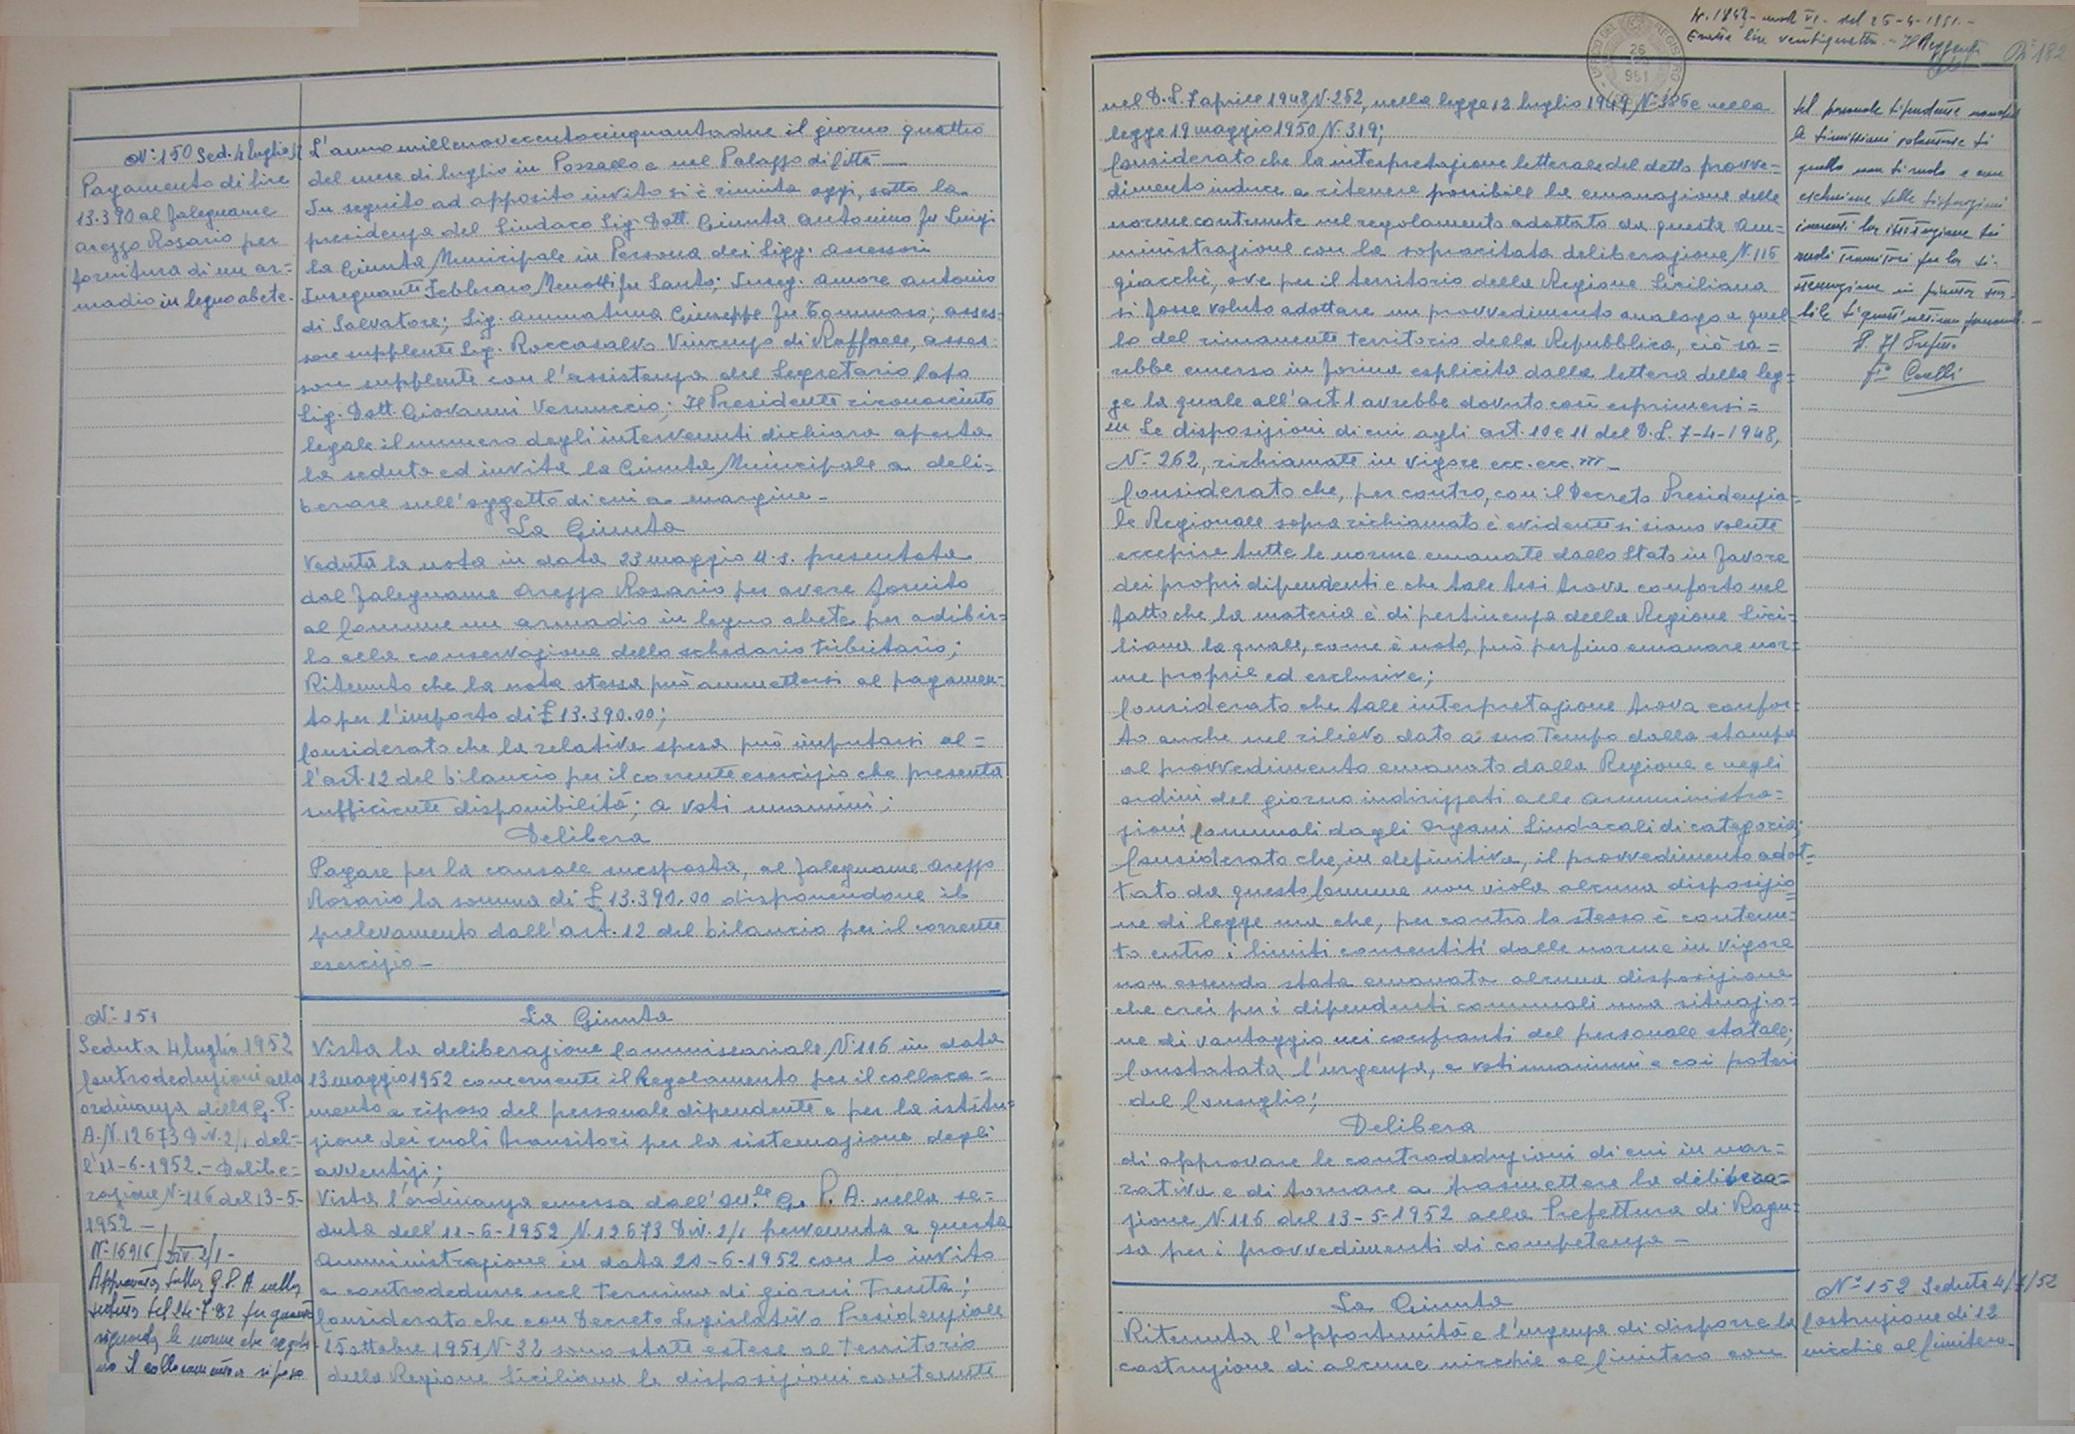 N° 150 Sed. 4 luglio 52
Pagamento di lire
13.390 al falegname
Arezzo Rosario per
fornitura di un ar=
madio in legno abete.
L'anno millenovecentocinquantadue il giorno quattro
del mese di luglio in Pozzallo e nel Palazzo di Città
In seguito ad apposito invito si è riunita oggi, sotto la
presidenza del Sindaco Sig. Dott. Giunta Antonino fu Luigi
la Giunta Municipale in Persona dei Sigg. Assessori
Insegnante Febbraro Menotti fu Santo; Inseg. Amore Antonio
di Salvatore; Sig. Ammatuna Giuseppe fu Tommaso; asses=
sore supplente Sig. Roccasalvo Vincenzo di Raffaele, asses=
sore supplente con l'assistenza del Segretario Capo
Sig. Dott. Giovanni Vernuccio; Il Presidente riconosciuto
legale il numero degli intervenuti dichiara aperta
la seduta ed invita la Giunta Municipale a deli=
berare sull'oggetto di cui a margine –
La Giunta
Veduta la nota in data 23 maggio u.s. presentata
dal falegname Arezzo Rosario per avere fornito
al Comune un armadio in legno abete per adibir=
lo alla conservazione dello schedario tributario;
Ritenuto che la nota stessa può ammettersi al pagamen=
to per l'importo di £ 13.390.00;
Considerato che la relativa spesa può imputarsi al=
l'art. 12 del bilancio per il corrente esercizio che presenta
sufficiente disponibilità; a voti unanimi;
Delibera
Pagare per la causale suesposta, al falegname Arezzo
Rosario la somma di £ 13.390.00 disponendone il
prelevamento dall'art. 12 del bilancio per il corrente
esercizio –
N° 151
Seduta 4 luglio 1952
Controdeduzioni alla
ordinanza della G. P.
A. N. 12673 Div. 2/1 del=
l'11-6-1952. – Delibe=
razione N° 116 del 13-5-
1952 –
N° 16916/Div. 2/1 –
Approvata dalla G. P. A. nella
seduta del 24-7-52 per quanto
riguarda le norme che regola
no il collocamento a riposo
La Giunta
Vista la deliberazione Commissariale N. 116 in data
13 maggio 1952 concernente il Regolamento per il colloca=
mento a riposo del personale dipendente e per la istitu=
zione dei ruoli transitori per la sistemazione degli
avventizi;
Vista l'ordinanza emessa dall'On.le G. P. A. nella se=
duta dell'11-6-1952 N. 12673 Div. 2/1 pervenuta a questa
Amministrazione in data 20-6-1952 con lo invito
a controdedurre nel termine di giorni Trenta;
Considerato che con Decreto Legislativo Presidenziale
15 ottobre 1951 N. 32 sono state estese al Territorio
della Regione Siciliana le disposizioni contenute
N. 1843 – mod VI – del 26-4-1951 –
Esatte lire ventiquattro. – Il Reggente
N° 182
UFFICIO DEL REGISTRO
26
951
nel D. L. 7 aprile 1948 N. 262, nella legge 12 luglio 1949 N. 386 e nella
legge 19 maggio 1950 N. 319;
Considerato che la interpretazione letterale del detto provve=
dimento induce a ritenere possibile la emanazione delle
norme contenute nel regolamento adottato da questa Am=
ministrazione con la sopracitata deliberazione N. 116
giacchè, ove per il territorio della Regione Siciliana
si fosse voluto adottare un provvedimento analogo a quel=
lo del rimanente territorio della Repubblica, ciò sa=
rebbe emerso in forma esplicita dalla lettera della leg=
ge la quale all'art. 1 avrebbe dovuto così esprimersi =
"" Le disposizioni di cui agli art. 10 e 11 del D. L. 7-4-1948,
N° 262, richiamate in vigore ecc. ecc. "" –
Considerato che, per contro, con il Decreto Presidenzia=
le Regionale sopra richiamato è evidente si siano volute
recepire tutte le norme emanate dallo Stato in favore
dei propri dipendenti e che tale tesi trova conforto nel
fatto che la materia è di pertinenza della Regione Sici=
liana la quale, come è noto, può perfino emanare nor=
me proprie ed esclusive;
Considerato che tale interpretazione trova confor=
to anche nel rilievo dato a suo Tempo dalla stampa
al provvedimento emanato dalla Regione e negli
ordini del giorno indirizzati alle Amministra=
zioni Comunali dagli Organi Sindacali di categoria;
Considerato che, in definitiva, il provvedimento adot=
tato da questo Comune non viola alcuna disposizio
ne di legge ma che, per contro lo stesso è contenu=
to entro i limiti consentiti dalle norme in vigore
non essendo stata emanata alcuna disposizione
che crei per i dipendenti comunali una situazio=
ne di vantaggio nei confronti del personale statale;
Constatata l'urgenza, a voti unanimi e coi poteri
del Consiglio;
Delibera
di approvare le controdeduzioni di cui in nar=
rativa e di tornare a trasmettere la delibera=
zione N. 116 del 13-5-1952 alla Prefettura di Ragu=
sa per i provvedimenti di competenza –
La Giunta
Ritenuta l'opportunità e l'urgenza di disporre la
costruzione di alcune nicchie al Cimitero con
del personale dipendente nonché
le dimissioni volontarie di
quello non di ruolo e con
esclusione delle disposizioni
inerenti la istituzione dei
ruoli Transitori per la si=
stemazione in pianta sta=
bile di quest'ultimo personale. –
P. Il Prefetto
fto Corelli
N° 152 Seduta 4/7/52
Costruzione di 12
nicchie al Cimitero –